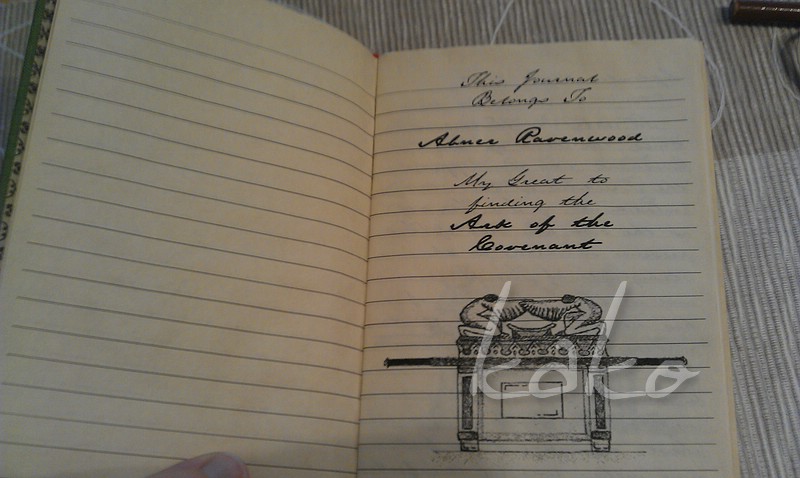 This Journal
Belongs To
Abner Ravenwood
My Great to
finding the
Ark of the
Covenant
koko